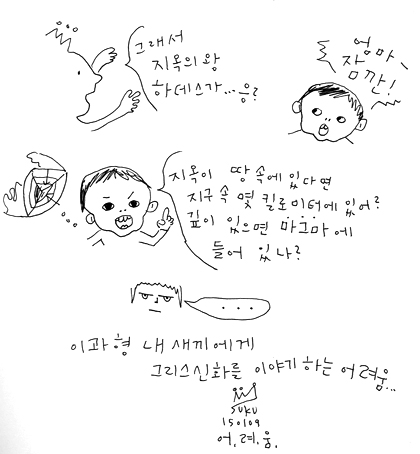 그래서
지옥의 왕
하데스가... 응?
엄마
잠깐!
지옥이 땅 속에 있다면
지구 속 몇 킬로미터에 있어?
깊이 있으면 마그마에
들어 있나?
...
이과형 내새끼에게
그리스신화를 이야기하는 어려움...
SUKU
150109
어.려.움.